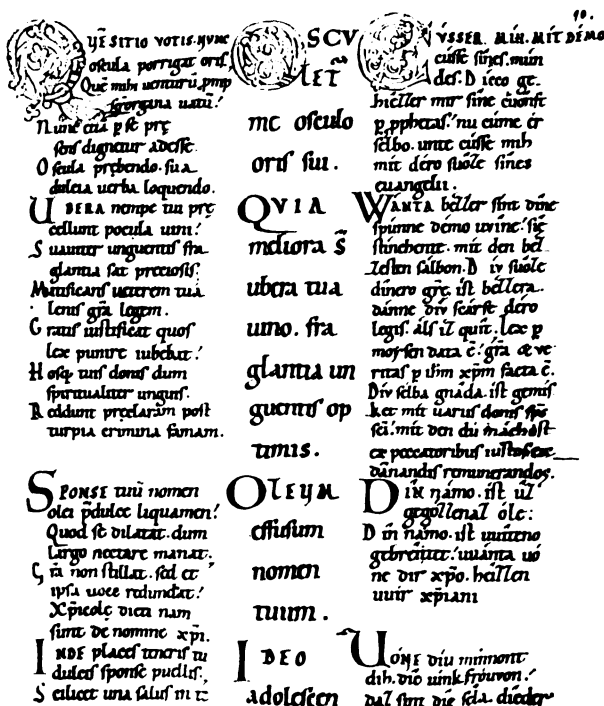 10.
QVE̅SITIO VOTIS. NVNC
oscula porrigat oris.
Que̅ mihi
Nunc
sens dignetur adesse.
Oscula prębendo. sua
dulcia uerba loquendo.
UBERA nempe tui prę
cellunt pocula uini!
Suauiter unguentis fra
glantia sat preciosis!
Mitificans ueterem tua
lenis gr̅a legem.
Gratis iustificat quos
lex punire iubebat!
Hosq; tuis donis dum
spiritualiter unguis.
Reddunt pręclaram post
turpia crimina famam.
SPONSE tuu̅ nomen
olei p̅dulce liquamen!
Quod se dilatat. dum
largo nectare manat.
Gr̅a non stillat. sed et
ipsa uoce redundat!
Xp̅icolę dicti nam
sunt de nomine xp̅i.
INDE places teneris tu
dulcis sponse puellis.
Scilicet una salus in te
OSCV
LET̅
me osculo
oris sui.
QVIA
meliora s̅
ubera tua
uino. fra
glantia un
guentis op
timis.
OLEVM
effusum
nomen
tuum.
IDEO
adolescen
CVSSER. MIH. MIT DEMO
cússe sines. mun
des. Dicco ge
hiezzer mir sine cuonft
p pphetas! nu cume er
selbo. unte cusse mih
mit dero suoze sines
euangelii.
WANTA bezzer sint dine
spunne demo wine! sie
stinchente. mit den bez
zesten salbon. Div suoze
dinero gr̅e. ist bezzera.
danne div scarfe dero
legis. als iz quit. lex p
moysen data e̅! gr̅a & ve
ritas p ih̅m xp̅m facta e̅.
Div selba gnáda. ist gemis
ket mit uariis donis sp̅s
sc̅i! mit den du máchost
ex peccatoribus iustos. ex
dánandis remunerandos.
DIN námo. ist uz
gegozzenaz óle!
Din námo. ist uuiteno
gebreitet! uuánta uó
ne dir xp̅o. heizzen
uuir xp̅iani
UONE diu minnont
dih. die iunkfróuuon!
daz sint die sela. dieder